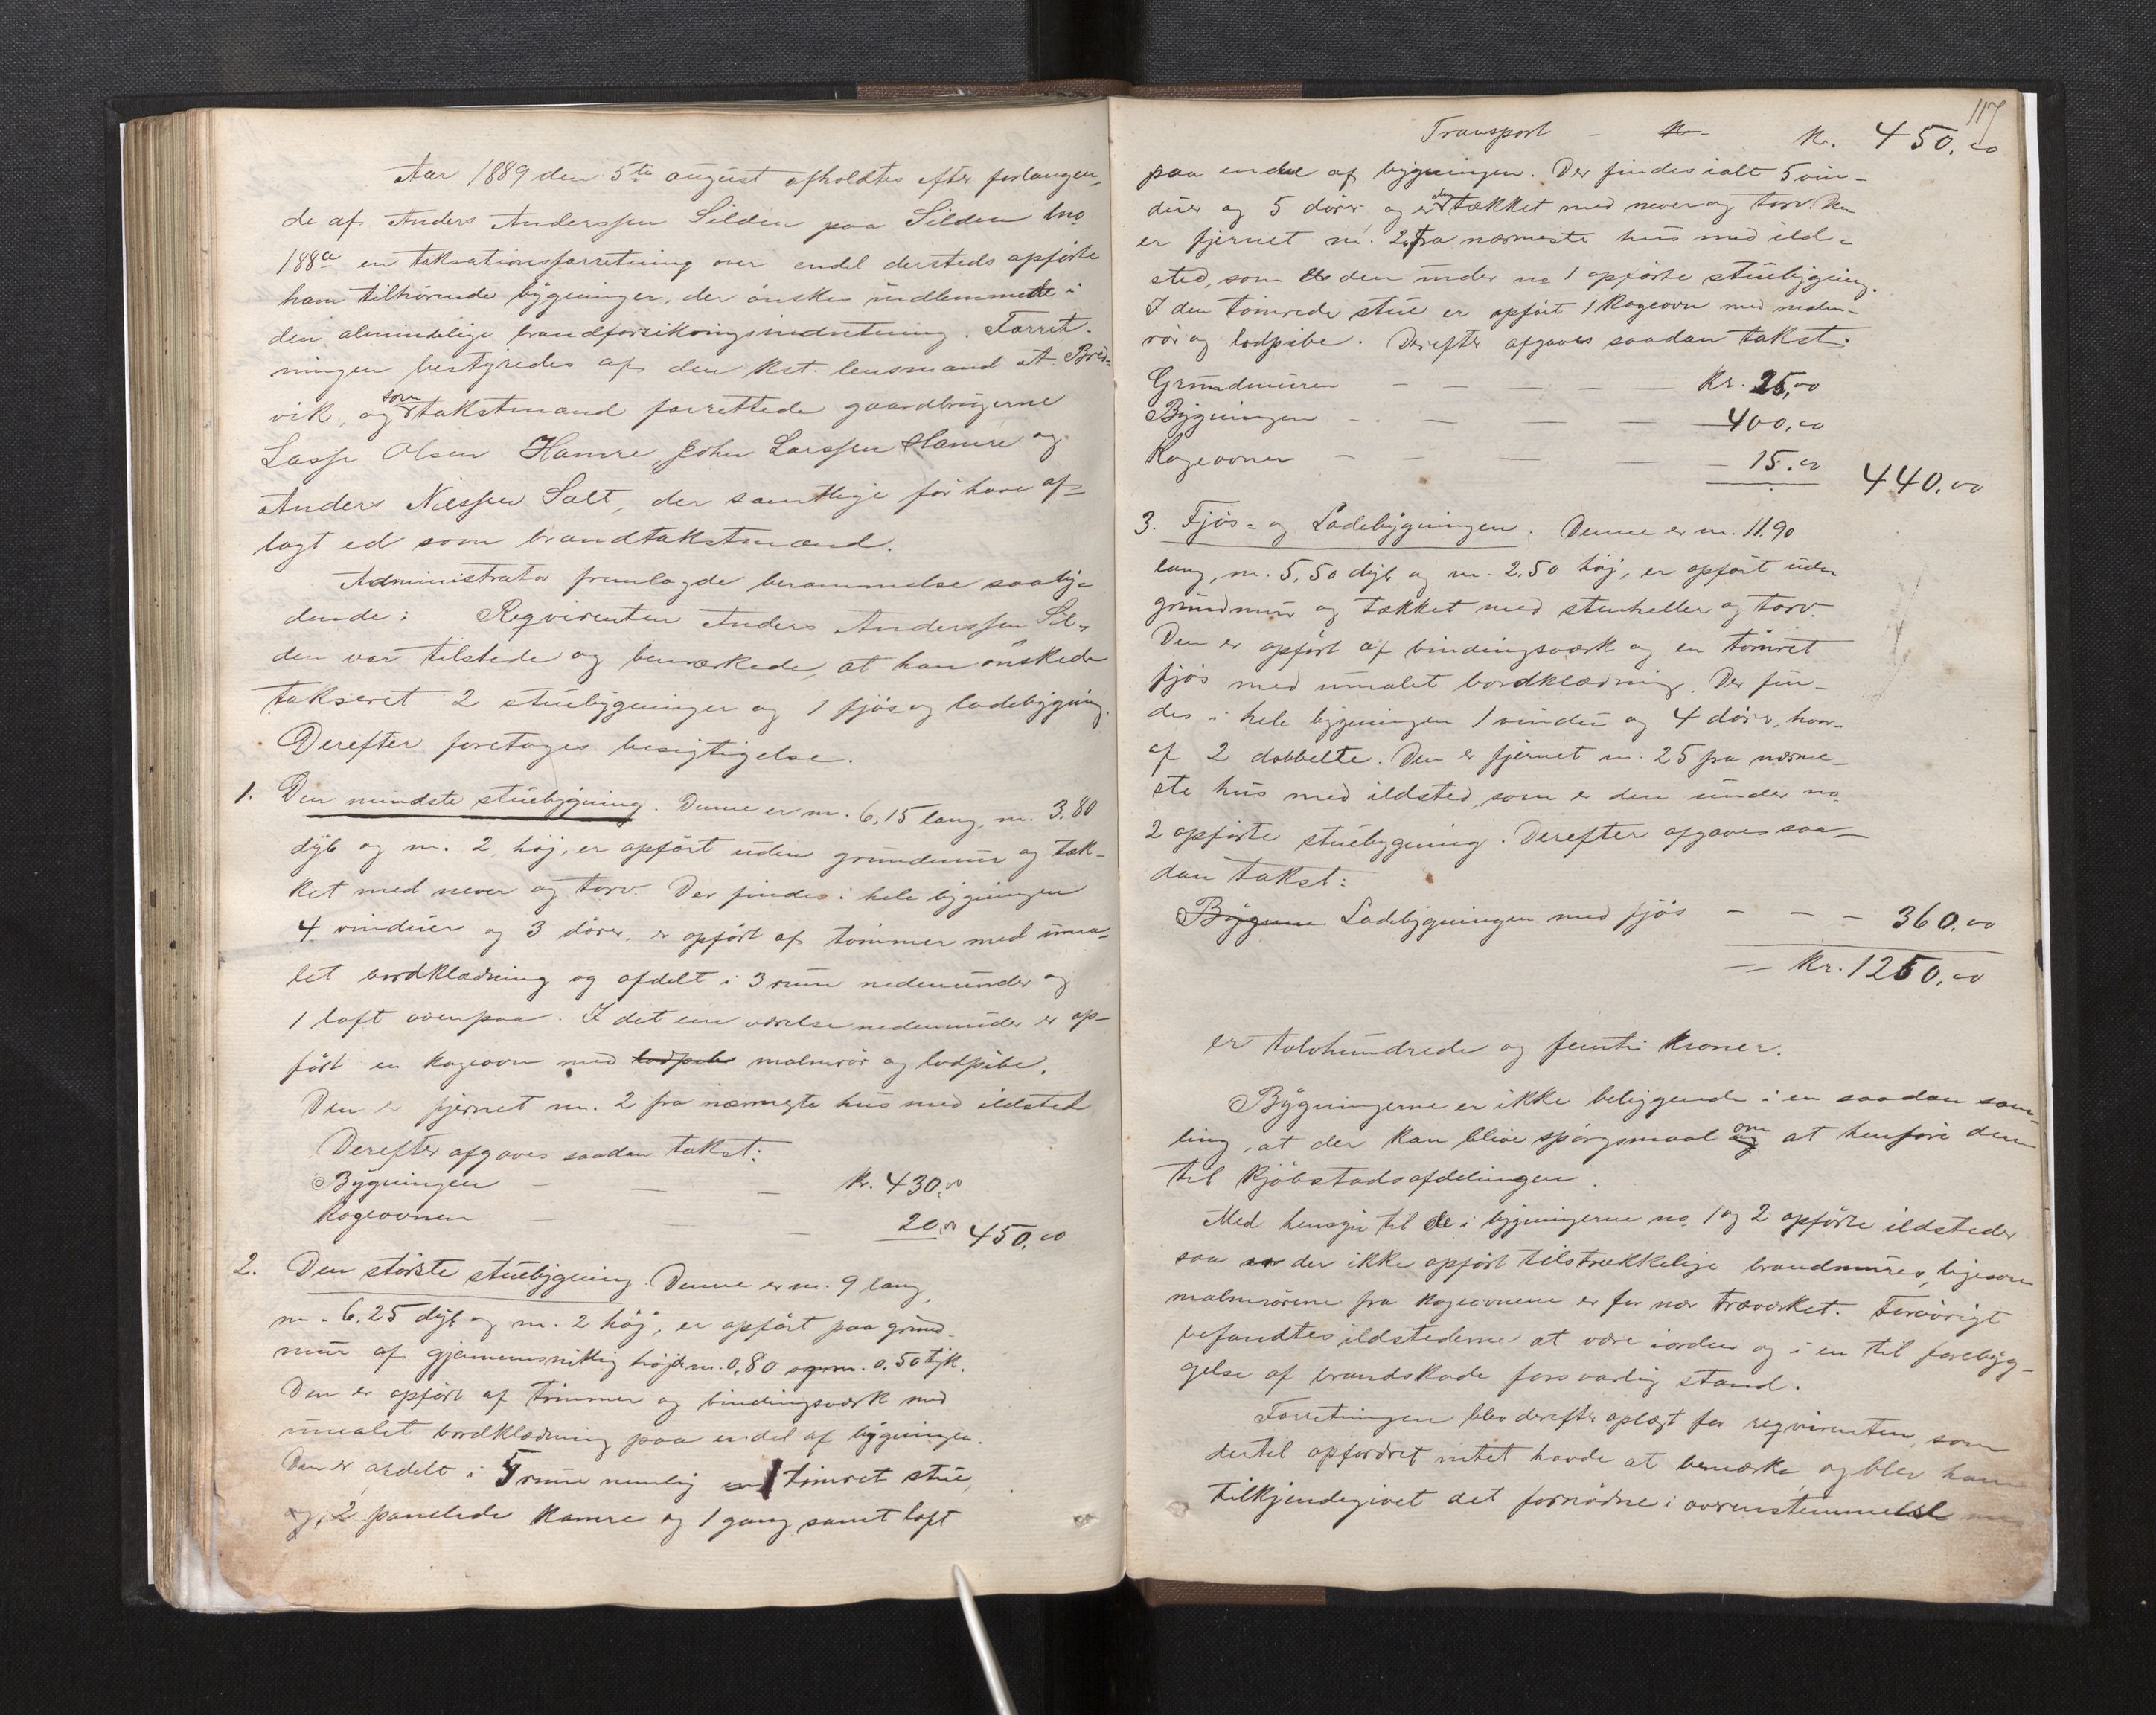 Aar 1889 den 5te august afholdtes efter forlangen-
de af Anders Anderssen Silden paa Silden lno
188a en taksationsforretning over endel dersteds opförte
ham tilhörende bygninger, der önskes indlemmede i
den almindelige brandforsikringsindretning. Forret-
ningen bestyredes af den kst. lensmand A. Bred-
vik, og som takstmænd forrettede gaardbrugerne
Lasse Olsen Hamre, John Larssen Hamre og
Anders Nilssen Salt, der samtlige för have af-
lagt ed som brandtakstmænd.
Administrator fremlagde berammelse saaly-
dende: Reqvirenten Anders Anderssen Sil-
den var tilstede og bemærkede, at han önskede
takseret 2 stuebygninger og 1 fjös- og ladebygning.
Derefter foretoges besigtigelse.
1. Den mindste stuebygning. Denne er m. 6,15 lang, m. 3.80
dyb og m. 2, höj, er opfört uden grundmur og tæk-
ket med never og torv. Der findes i hele bygningen
4 vinduer og 3 dörer, er opfört af tömmer med uma-
let bordklædning og afdelt i 3 rum nedenunder og
1 loft ovenpaa. I det ene værelse nedenunder er op-
fört en kogeovn med lodpibe malmrör og lodpibe.
Den er fjernet m. 2 fra nærmeste hus med ildsted
Derefter afgaves saadan takst:
Bygningen - - - kr. 430,00
Kogeovnen - - - 20,00 450,00
2. Den störste stuebygning. Denne er m. 9 lang,
m. 6.25 dyb og m. 2 höj, er opfört paa grund-
mur af gjennemsnitlig höjde m. 0,80 og m. 0.50 tyk.
Den er opfört af tömmer og bindingsværk med
umalet bordklædning paa endel af bygningen.
Den er afdelt i 5 rum nemlig 1 tömret stue,
og 2 panelede kamre og 1 gang samt loft
117
Transport - kr. kr. 450.00
paa endel af bygningen. Der findes ialt 5 vin-
duer og 5 dörer og er den tækket med never og torv. Den
er fjernet m. 2 fra nærmeste hus med ild-
sted, som er den under no 1 opförte stuebygning.
I den tömrede stue er opfört 1 kogeovn med malm-
rör og lodpibe. Derefter afgaves saadan takst.
Grundmuren - - - - - kr. 25,00
Bygningen - - - - 400,00
Kogeovnen - - - - 15.00 440.00
3. Fjös- og Ladebygningen. Denne er m. 11.90
lang, m. 5,50 dyb og m. 2,50 höj, er opfört uden
grundmur og tækket med stenheller og torv.
Den er opfört af bindingsværk og en tömret
fjös med umalet bordklædning. Der fin-
des i hele bygningen 1 vindu og 4 dörer, hvor-
af 2 dobbelte. Den er fjernet m. 25 fra nærme-
ste hus med ildsted, som er den under no
2 opförte stuebygning. Derefter afgaves saa-
dan takst:
Bygnin Ladebygningen med fjös - - - 360.00
kr. 1250,00
er tolvhundrede og femti kroner.
Bygningerne er ikke beliggende i en saadan sam-
ling, at der kan blive spörgsmaal om at henföre dem
til kjöbstadsafdelingen.
Med hensyn til de i bygningerne no 1 og 2 opförte ildsteder
saa er der ikke opfört tilstrækkelige brandmurer, ligesom
malmrörene fra kogeovnene er for nær træværket. Forövrigt
befandtes ildstederne at være iorden og i en til forebyg-
gelse af brandskade forsvarlig stand.
Forretningen blev derefter oplæst for reqvirenten, som
dertil opfordret intet havde at bemærke, og blev ham
tilkjendegivet det fornödne i overensstemmelse med